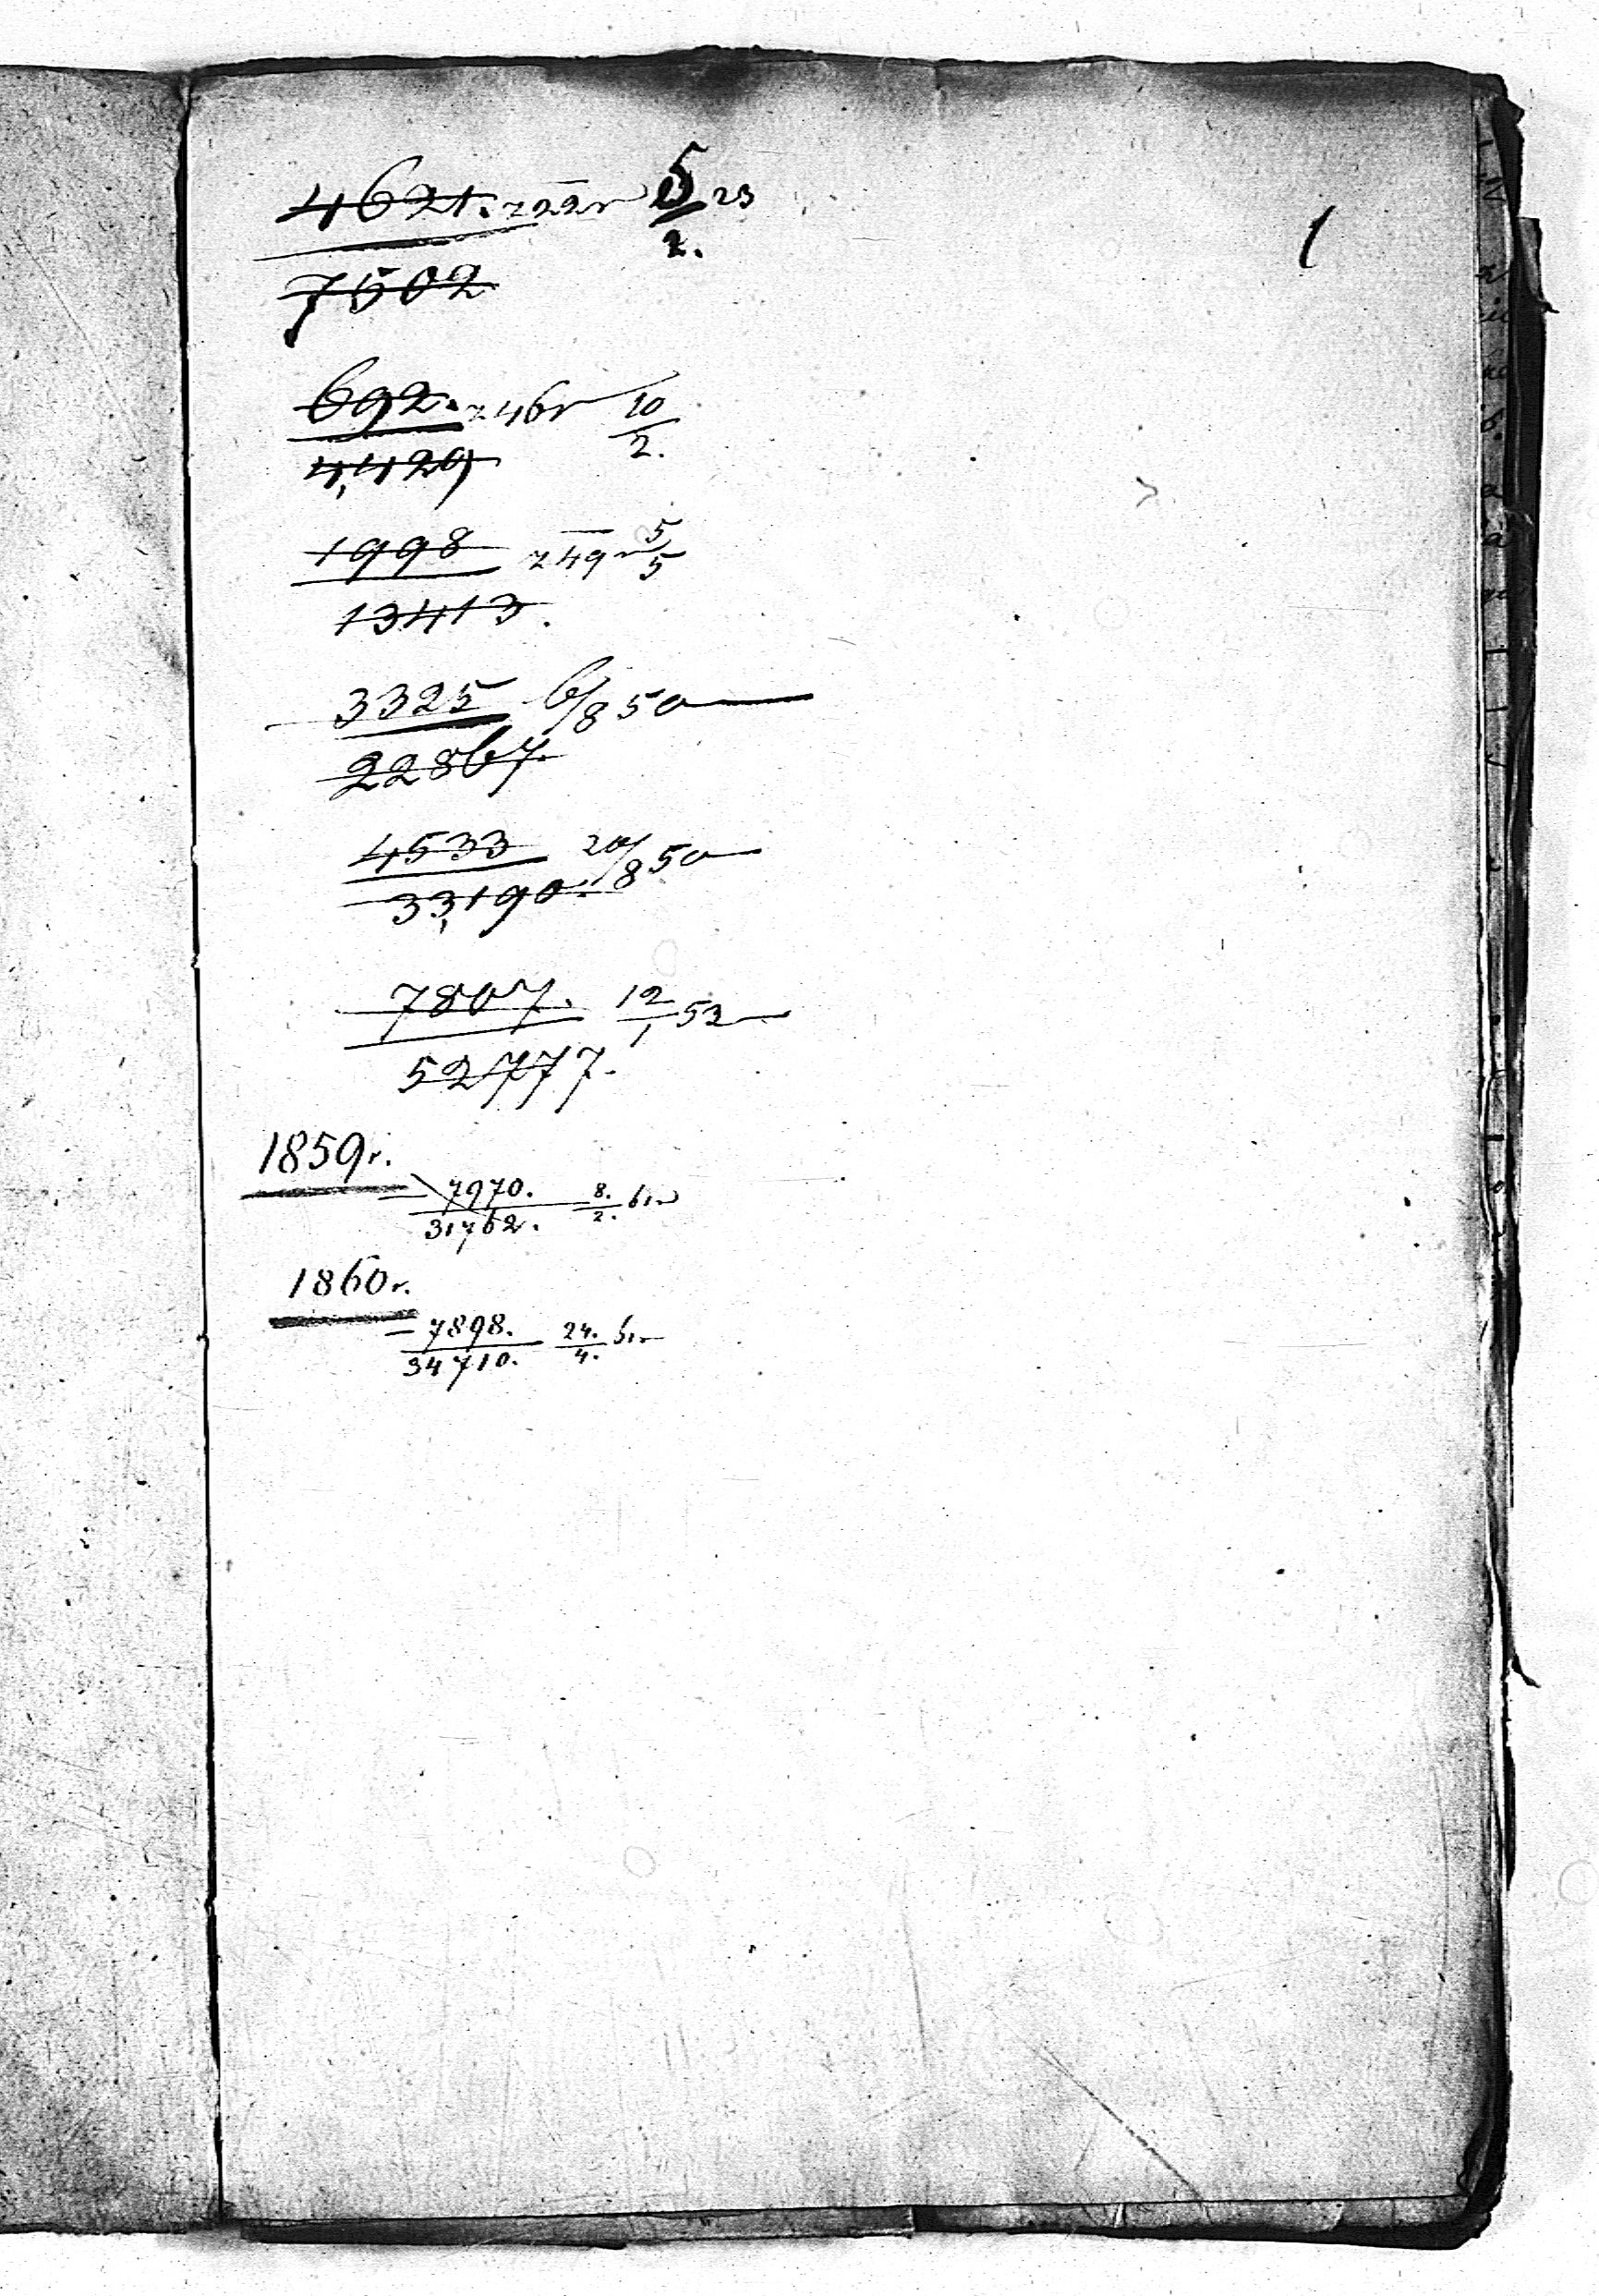 4621. 5 23
2.
1
7502
692. 246 10
2.
4,429
1998 249 5
5
13413.
3325 6/8 50
22867.
4533 20/8 50
33,190.
7807. 12 52
1
52777.
1859г.
7970. 8. 61
31,762. 2.
1860г.
7898. 24. 61
34710. 4.